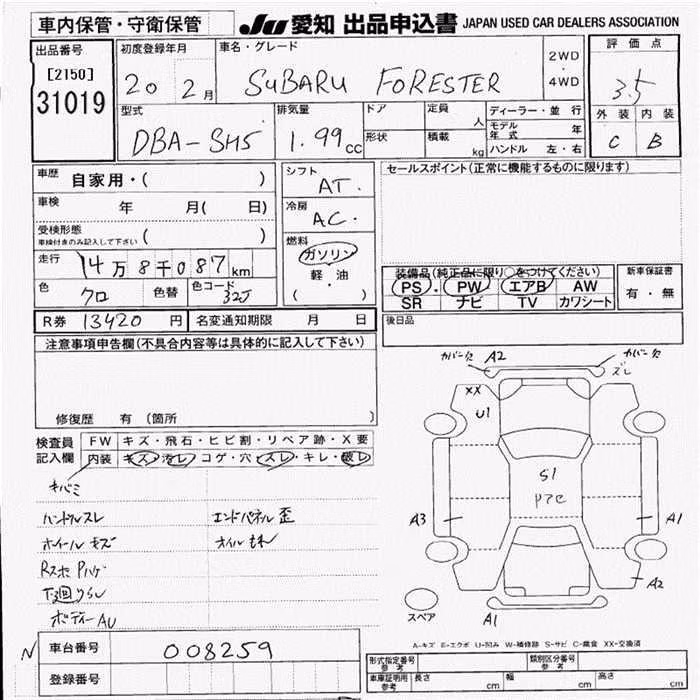 車内保管・守衛保管
JU 愛知 出品申込書 JAPAN USED CAR DEALERS ASSOCIATION
出品番号
[2150]
31019
初度登録年月
20 2月
車名・グレード
SUBARU FORESTER
2WD
・
4WD
評価点
3.5
外装 内装
C B
型式
DBA-SH5
排気量
1.99cc
ドア
形状
定員
人
積載
kg
ディーラー・並行
モデル年式 年
ハンドル 左・右
車歴 自家用・( )
車検 年 月( 日)
受検形態
車検付きのみ記入して下さい ( )
走行 14万8千087km
色 クロ 色替 色コード 32J
シフト
AT.
冷房
AC.
燃料
ガソリン
軽・油
( )
セールスポイント(正常に機能するものに限ります)
装備品(純正品に限り○をつけてください)
PS・PW エアB AW
SR ナビ TV カワシート
新車保証書
有・無
R券 13420円 名変通知期限 月 日
後日品
注意事項申告欄(不具合内容等は具体的に記入して下さい)
修復歴 有(箇所 )
検査員
記入欄
FW キズ・飛石・ヒビ割・リペア跡・X要
内装 キズ・汚レ・コゲ・穴・スレ・キレ・破レ
キバミ
ハンドルスレ エンドパネル歪
ホイールキズ オイルもれ
下廻りサビ
ボディーAU
カバー欠 A2 カバー欠
ズレ
XX
U1
S1
A3 A1
A2
スペア A1
A-キズ E-エクボ U-凹み W-補修跡 S-サビ C-腐食 XX-交換済
N 車台番号 008259
登録番号
形式指定番号
参考
類別区分番号
参考
車庫証明用
参考
長さ cm 幅 cm 高さ cm